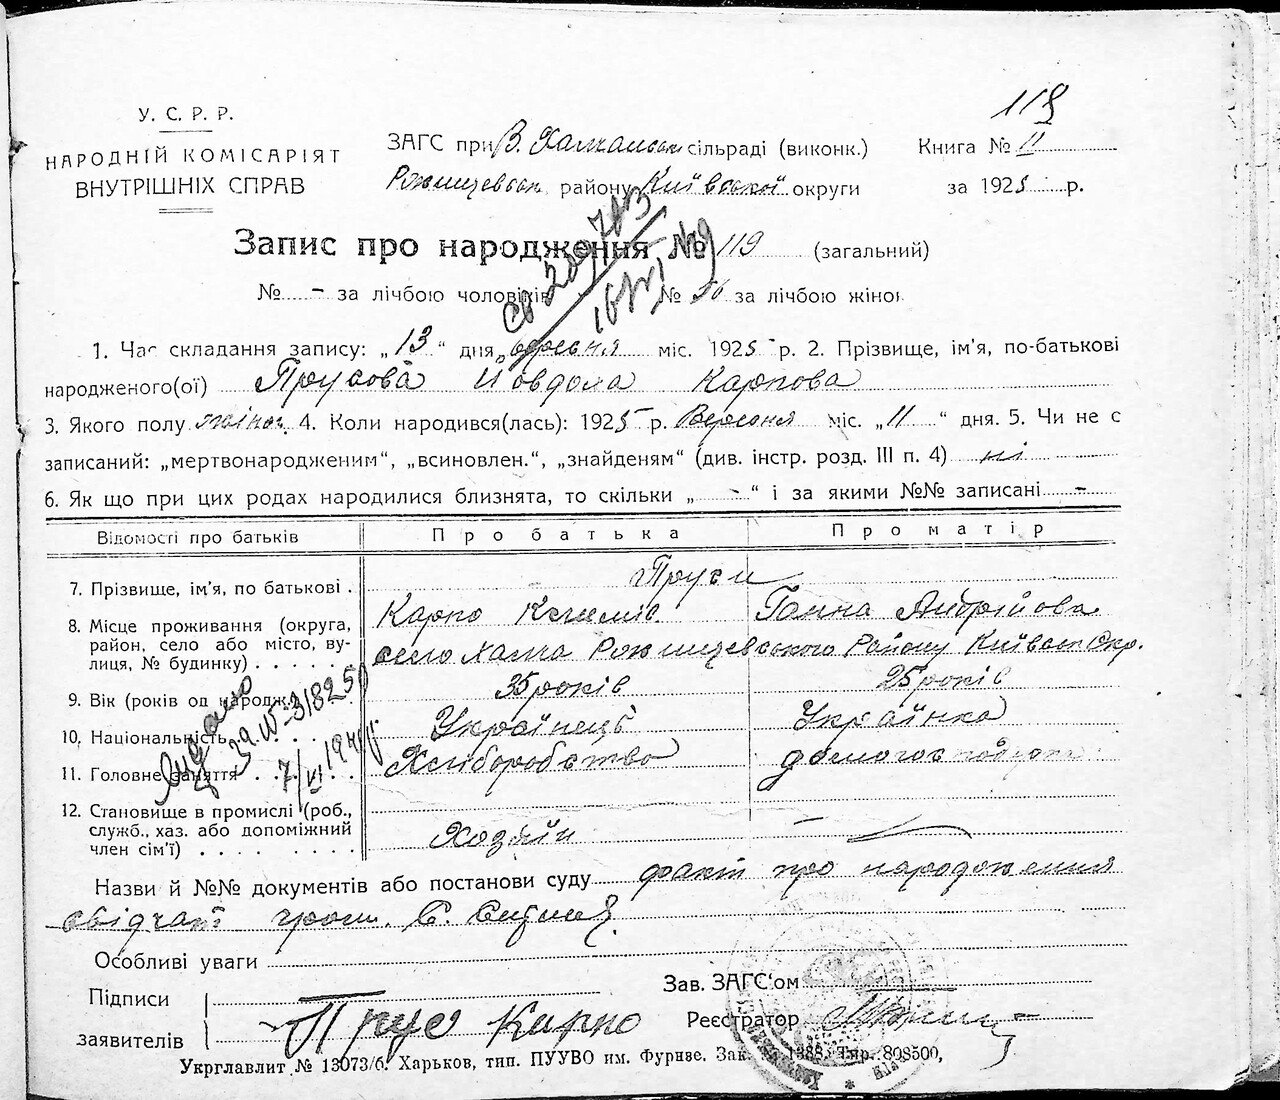 119
У. С. Р. Р.
НАРОДНІЙ КОМІСАРІЯТ
ВНУТРІШНІХ СПРАВ
ЗАГС при В. Халчанськ сільраді (виконк.)
Книга № 11
Рожицевськ району Київської округи
за 1925 р.
Запис про народження № 119 (загальний)
№ - за лічбою чоловіків № 56 за лічбою жінок
1. Час складання запису: „13“ дня вересня міс. 1925 р. 2. Прізвище, ім'я, по-батькові
народженого(ої) Прусова Йовдоха Карпова
3. Якого полу жіноч. 4. Коли народився(лась): 1925 р. Вересня міс. „11“ дня. 5. Чи не є
записаний: „мертвонародженим“, „всиновлен.“, „знайденям“ (див. інстр. розд. III п. 4) ні
6. Як що при цих родах народилися близнята, то скільки „ - “ і за якими №№ записані -
Відомості про батьків
Про батька
Про матір
7. Прізвище, ім'я, по батькові .
Пруси
Карпо Климів.
Ганна Андрійова.
8. Місце проживання (округа,
район, село або місто, ву-
лиця, № будинку) . . . . .
село Халча Рожицевського Району Київськ Окр.
9. Вік (років од народж.)
35 років
25 років
10. Національність
Українець
Українка
11. Головне заняття
Хліборобство
12. Становище в промислі (роб.,
служб., хаз. або допоміжний
член сім'ї) . . . . . . . .
Хозяїн
-
7/VI 194
Назви й №№ документів або постанови суду факт про народження
свідчать гром.
Особливі уваги
Підписи
заявителів
Прус Карпо
Зав. ЗАГС'ом
Реєстратор
Укрглавлит № 13073/б. Харьков, тип. ПУУВО им. Фрунзе. Зак. 1388. Тир. 808500,